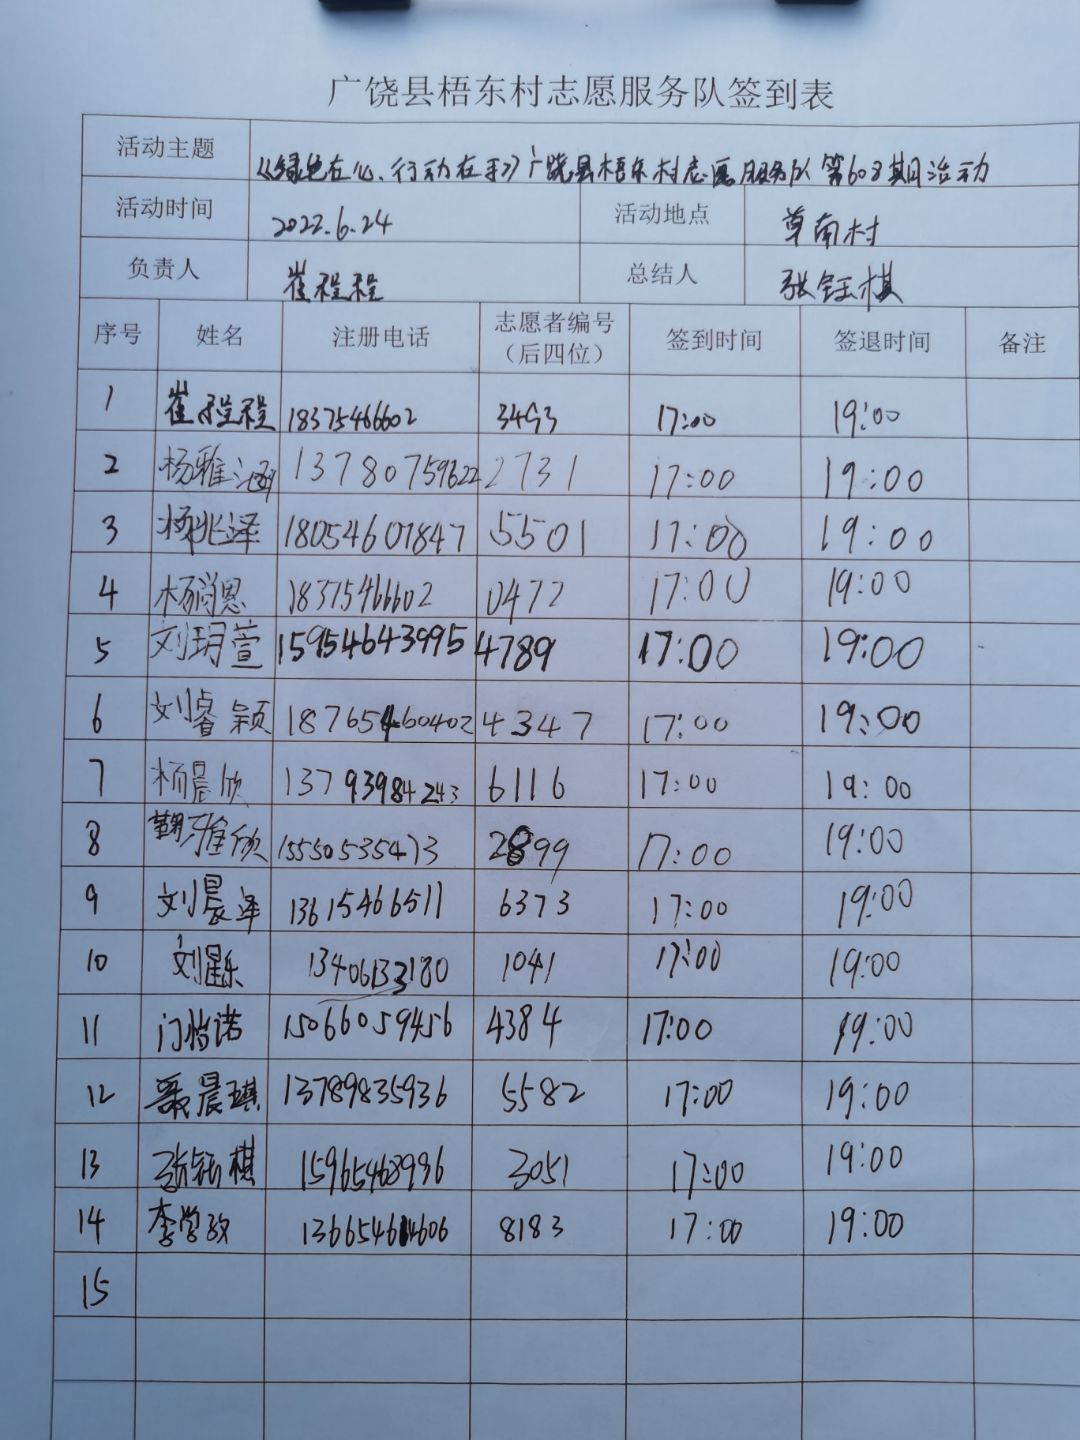 广饶县梧东村志愿服务队签到表
活动主题 《绿色在心、行动在手》广饶县梧东村志愿服务队第608期活动
活动时间 2022.6.24 活动地点 草南村
负责人 崔程程 总结人 张钰棋
序号 姓名 注册电话 志愿者编号（后四位） 签到时间 签退时间 备注
1 崔程程 18375466602 3493 17:00 19:00
2 杨雅涵 13780759622 2731 17:00 19:00
3 杨兆泽 18054607847 5501 17:00 19:00
4 杨尚恩 18375466602 0472 17:00 19:00
5 刘玥萱 15954643995 4789 17:00 19:00
6 刘睿颖 18765460402 4347 17:00 19:00
7 杨晨欣 13793984243 6116 17:00 19:00
8 雅欣 15550535473 2899 17:00 19:00
9 刘晨泽 13615466511 6373 17:00 19:00
10 刘星乐 13406133180 1041 17:00 19:00
11 门怡诺 15066059456 4384 17:00 19:00
12 晨琪 13789835936 5582 17:00 19:00
13 张钰棋 15965468936 3051 17:00 19:00
14 李学政 13665464606 8183 17:00 19:00
15